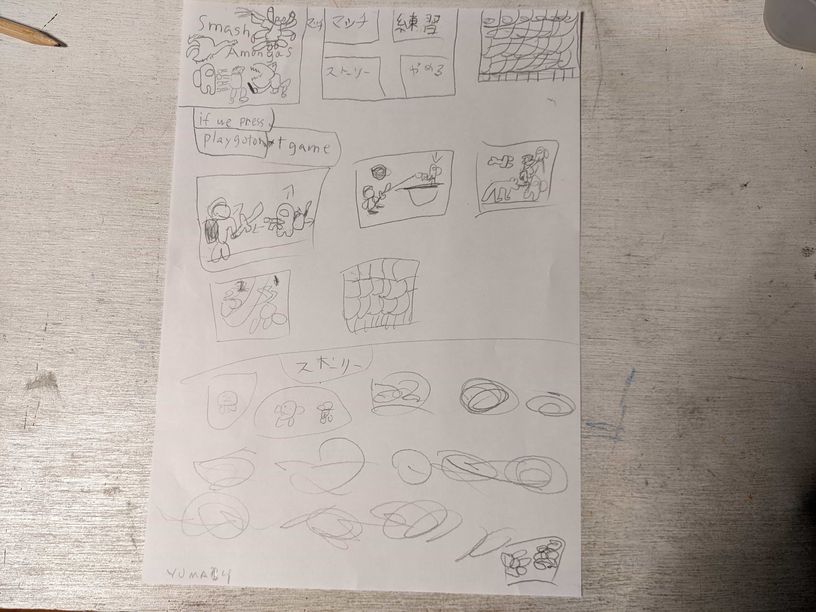 Smash
Amongas
マッチ
練習
ストーリー
やめる
if we press
playgoto
game
ストーリー
YUMA